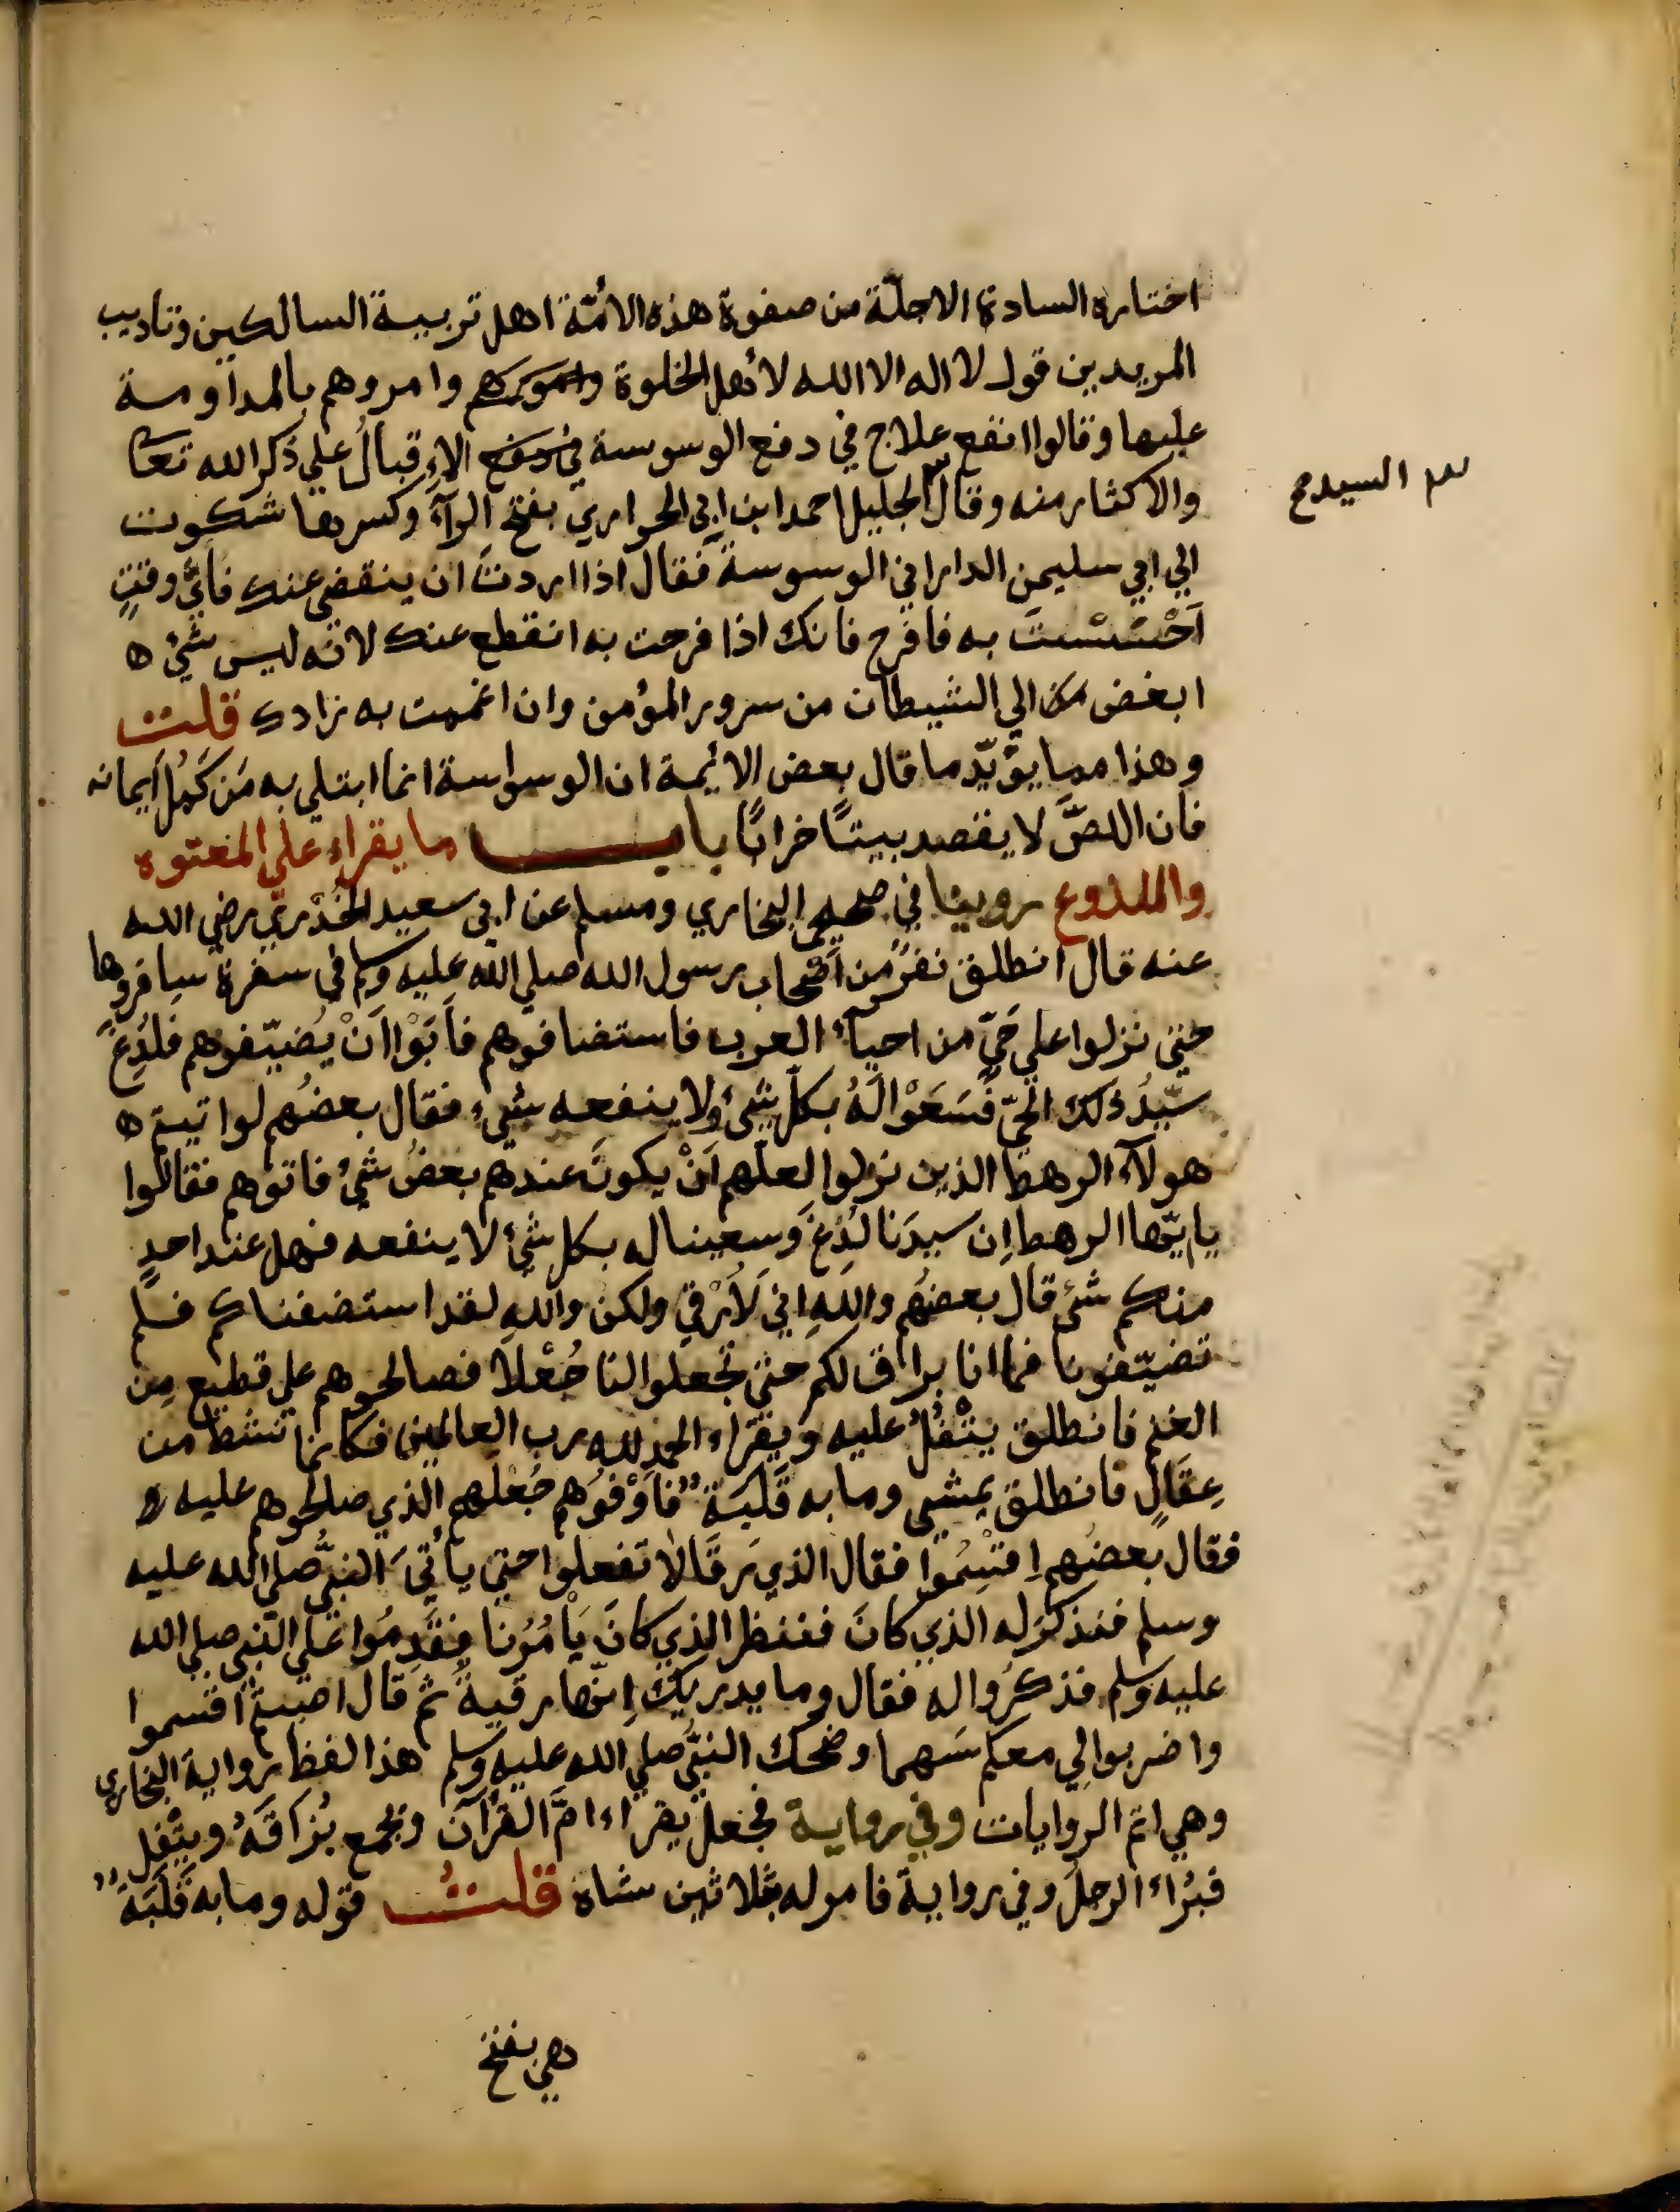 اختاره السادة الاجلّة من صفوة هذه الامّة اهل تربية السالكين وتاديب
المريدين قول لا اله الا الله لاهل الخلوة وامروهم بالمداومة
عليها وقالوا انفع علاج في دفع الوسوسة الاِقبالُ علي ذكر الله تعالى
والاكثار منه وقال الجليل احمد ابن ابي الحواري بفتح الرآء وكسرها شكوت
السيد صح
الي ابي سليمن الداراني الوسوسة فقال اذا اردتَ ان ينقضي عنك فايّ وقتٍ
اَحْسَسْتَ به فافرح فانك اذا فرحت به انقطع عنك لانه ليس شئ ه
ابغض الي الشيطان من سرور المؤمن وان اغممت به زادك قلت
وهذا مما يؤيّد ما قال بعض الائيمة ان الوسواسة انما ابتلي به مَن كَمُلَ ايمانه
فان اللصَّ لا يقصد بيتًا خرابًا باب ما يقراء علي المعتوه
والملدوغ روينا في صحيحي البخاري ومسلم عن ابي سعيد الخُدْريّ رضي الله
عنه قال انطلق نفرٌ من اَصْحاب رسول الله صلي الله عليه وسلم في سفرة سافروها
حتي نزلوا علي حَيّ من احيآء العرب فاستضافوهم فاَبَوْا اَنْ يُضيّفوهم فلُدِغَ
سيّدُ ذلك الحيّ فَسَعَوْا لَهُ بكلّ شئ ولا ينفعه شئ فقال بعضُهم لو اتيتم ه
هولآء الرهط الذين نزلوا لعلّهم اَنْ يكونَ عندهم بعضُ شئ فاتوهم فقالوا
يا ايّها الرهط اِن سيدَنا لُدِغَ وسعينا له بكل شئ لا ينفعه فهل عند احدٍ
منكم شئ قال بعضُهم واللهِ اني لَاَرْقي ولكن واللهِ لقد استضفناكم فلم
تضيّفونا فما انا براق لكم حتي تجعلوا لنا جُعْلا فصالحوهم علي قطيع مِن
الغنم فانطلق يتْفُلُ عليه ويقراء الحمد لله رب العالمين فكانما نشط من
عِقَالٍ فانطلق يمشي وما به قَلَبَةٌ فاَوْفَوْهم جُعْلَهم الذي صالحوهم عليه
فقال بعضُهم اِقتْسِمُوا فقال الذي رَقَا لا تفعلوا حتي ياتيَ النبيَّ صلي الله عليه
وسلم فنذكرَ له الذي كانَ فننظر الذي كانَ يَاْمُرُنا فقَدِمُوا علي النبي صلي الله
عليه وسلم فذكرُوا له فقال وما يدريك اِنّها رقيةٌ ثم قال اصبتم اقتسموا
واضربوا لي معكم سَهما وضحك النبيُّ صلي الله عليه وسلم هذا لفظ رواية البخاري
وهي اتم الروايات وفي رواية فجعل يقراء امَّ القرآن ويجمع بُزاقَهُ ويتْفِل
فبُراء الرجلُ وفي رواية فامر له بثلاثين شاة قلتُ قوله وما به قَلَبَةٌ
وهي بفتح